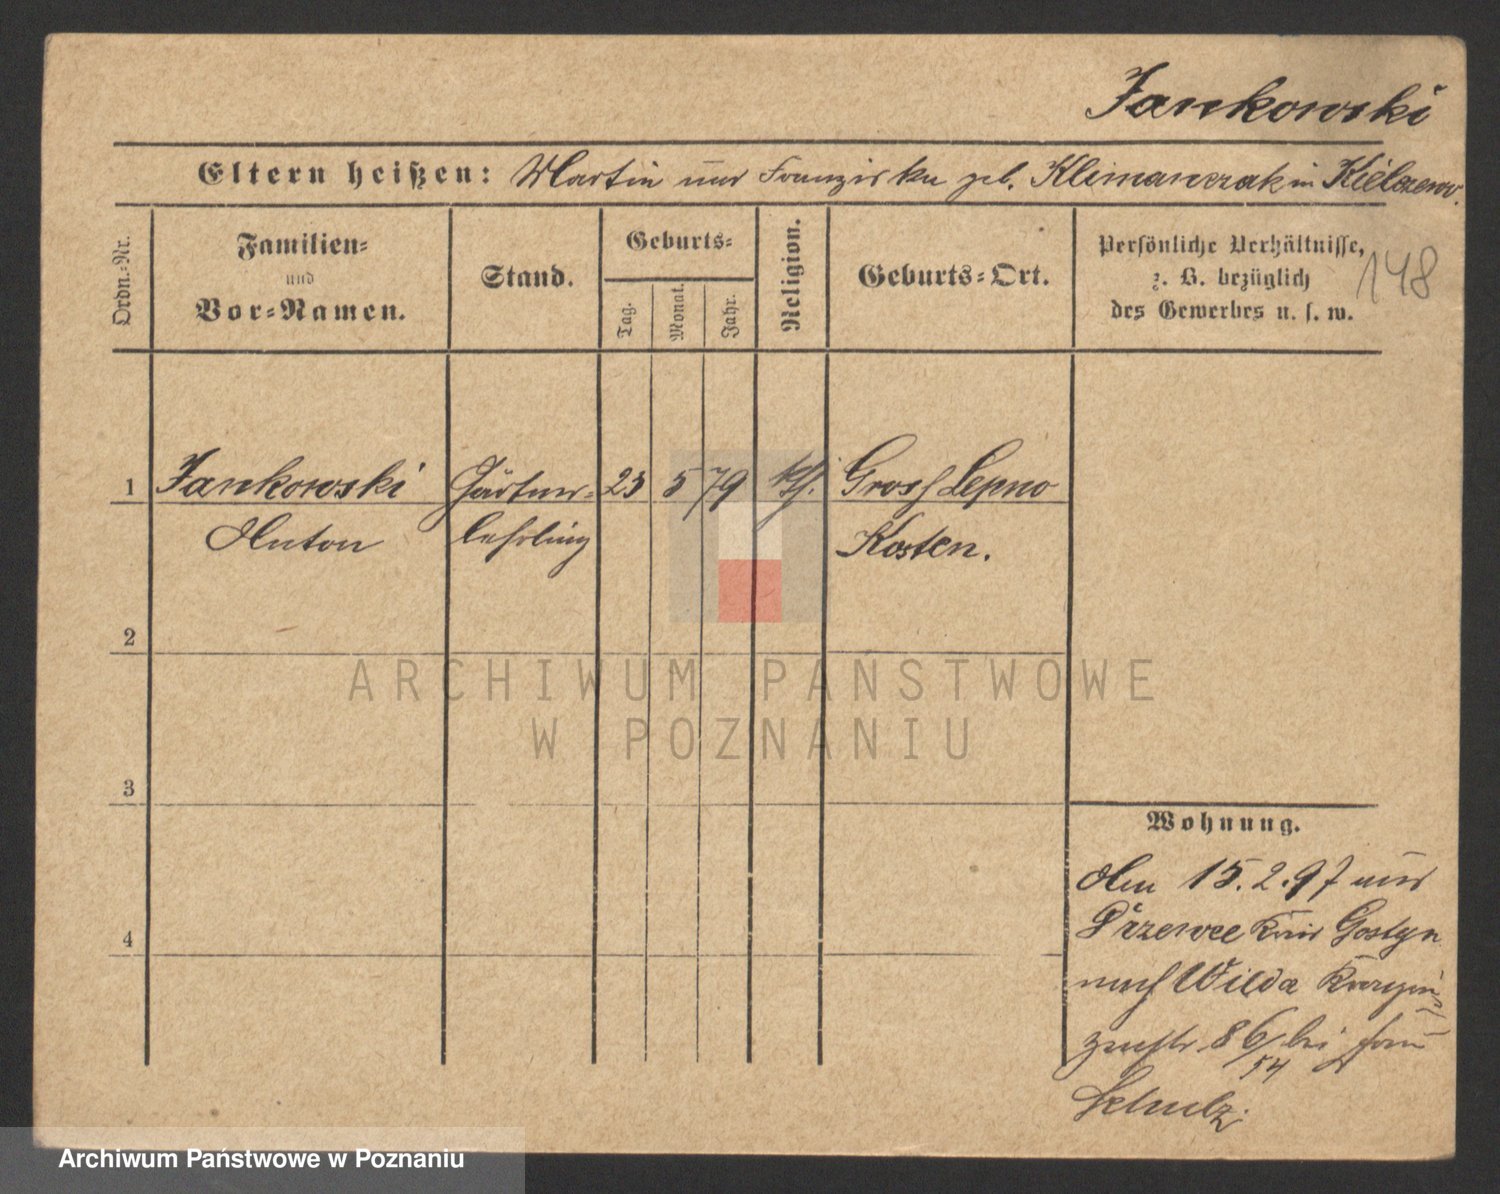 Jankowski
Eltern heißen: Martin und Franziska geb. Klimanczak in Kielczewo.
Ordn.=Nr.
Familien=
und
Vor=Namen.
Stand.
Geburts=
Tag.
Monat.
Jahr.
Religion.
Geburts=Ort.
Persönliche Verhältnisse,
z. B. bezüglich
des Gewerbes u. s. w.
148
1 Jankowski Gärtner= 23 5 79 kth. Gross Lepno
Anton lehrling Kosten.
2
ARCHIWUM PAŃSTWOWE
W POZNANIU
3
4
Wohnung.
Am 15.2.97 aus
Kreis Gostyn
nach Wilda
86/54 bei Frau
Schulz
Archiwum Państwowe w Poznaniu